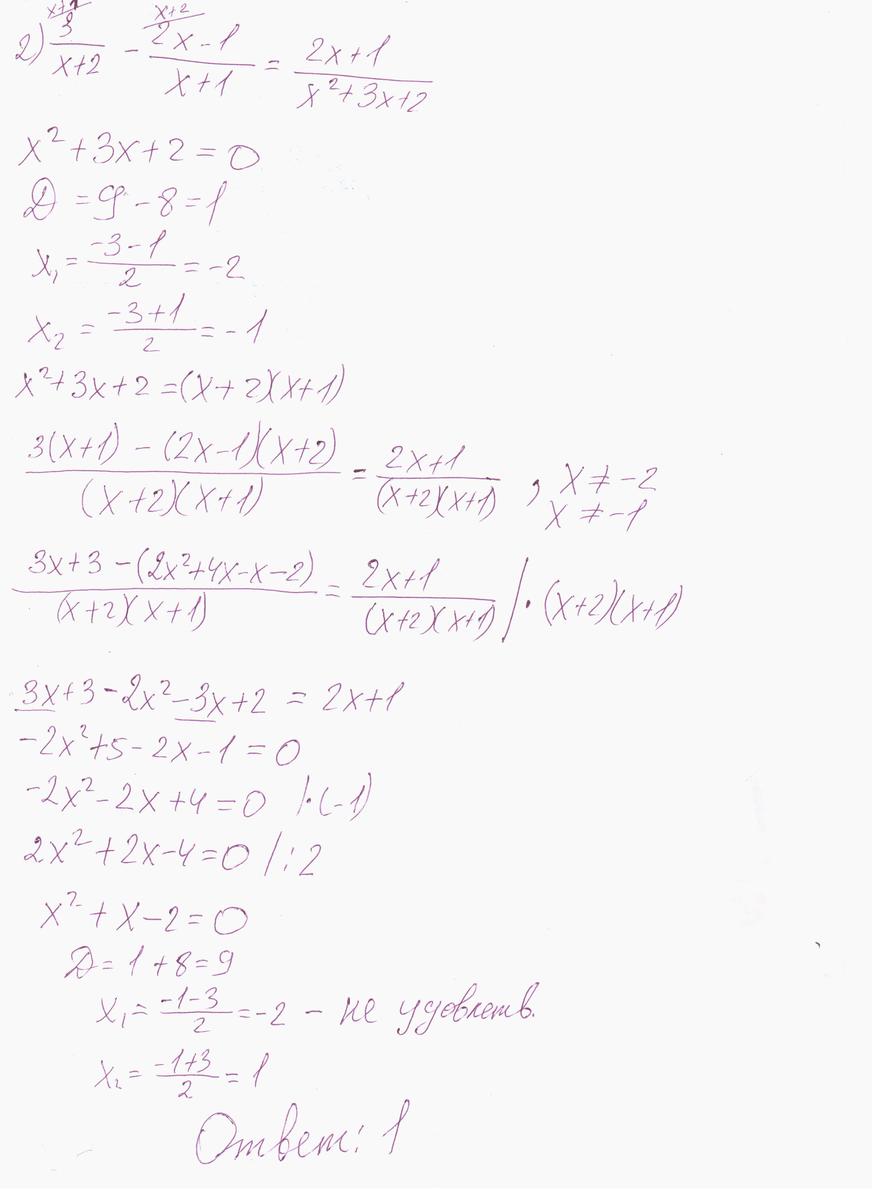 2) 3/(x+2) ^(x+1) - (2x-1)/(x+1) ^(x+2) = (2x+1)/(x²+3x+2)
x²+3x+2=0
D=9-8=1
x₁=(-3-1)/2=-2
x₂=(-3+1)/2=-1
x²+3x+2=(x+2)(x+1)
(3(x+1)-(2x-1)(x+2))/((x+2)(x+1)) = (2x+1)/((x+2)(x+1)), x≠-2
x≠-1
(3x+3-(2x²+4x-x-2))/((x+2)(x+1)) = (2x+1)/((x+2)(x+1)) /·(x+2)(x+1)
3x+3-2x²-3x+2=2x+1
-2x²+5-2x-1=0
-2x²-2x+4=0 /·(-1)
2x²+2x-4=0 /:2
x²+x-2=0
D=1+8=9
x₁=(-1-3)/2=-2 - не удовлетв.
x₂=(-1+3)/2=1
Ответ: 1